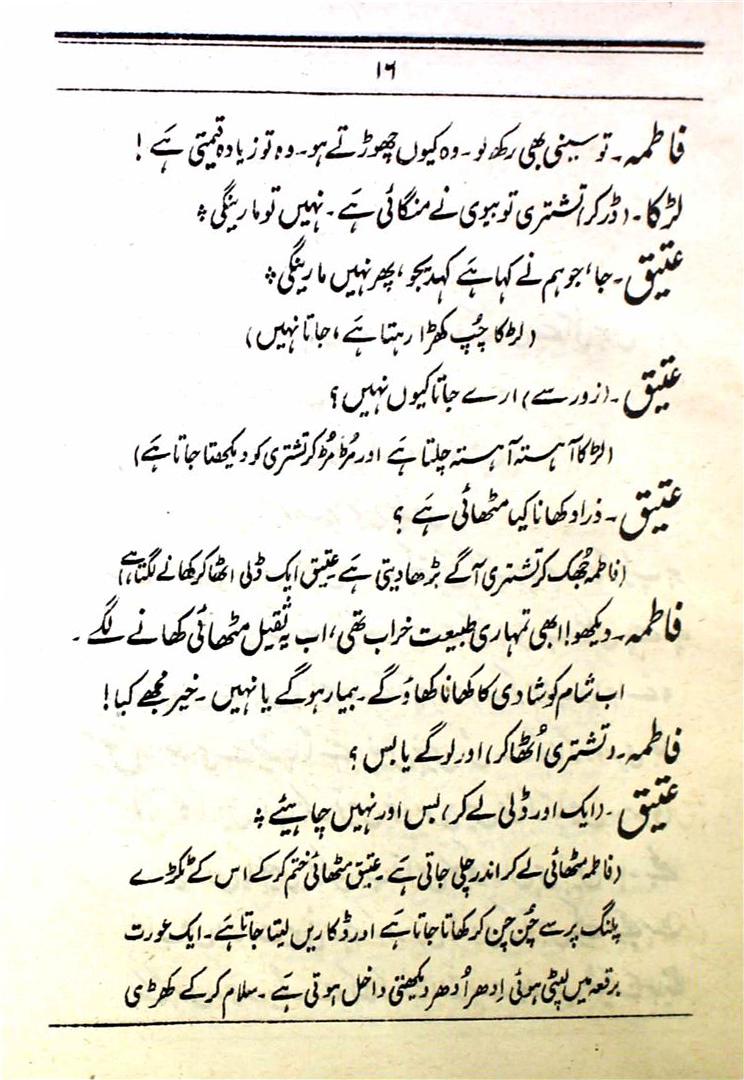 ۱٦
فاطمہ۔ تو سینی بھی رکھ لو۔ وہ کیوں چھوڑتے ہو۔ وہ تو زیادہ قیمتی ہَے !
لڑکا۔ (ڈر کر) تشتری تو بیوی نے منگائی ہَے۔ نہیں تو مارینگی ⁘
عتیق۔ جا، جو ہم نے کہا ہَے کہدیجو، پھر نہیں مارینگی ⁘
(لڑکا چُپ کھڑا رہتا ہَے، جاتا نہیں)
عتیق۔ (زور سے) ارے جاتا کیوں نہیں؟
(لڑکا آہستہ آہستہ چلتا ہَے اور مُڑ مُڑ کر تشتری کو دیکھتا جاتا ہَے)
عتیق۔ ذرا دکھانا کیا مٹھائی ہَے ؟
(فاطمہ جُھک کر تشتری آگے بڑھا دیتی ہَے عتیق ایک ڈلی اٹھا کر کھانے لگتا ہَے)
فاطمہ۔ دیکھو! ابھی تمہاری طبیعت خراب تھی، اب یہ ثقیل مٹھائی کھانے لگے۔
اب شام کو شادی کا کھانا کھاؤ گے۔ بیمار ہوگے یا نہیں۔ خیر مجھے کیا!
فاطمہ۔ (تشتری اُٹھا کر) اور لوگے یا بس ؟
عتیق۔ (ایک اور ڈلی لے کر) بس اور نہیں چاہیئے ⁘
(فاطمہ مٹھائی لے کر اندر چلی جاتی ہَے۔ عتیق مٹھائی ختم کر کے اس کے ٹکڑے
پلنگ پر سے چُن چن کر کھاتا جاتا ہَے اور ڈکاریں لیتا جاتا ہَے۔ ایک عورت
برقعہ میں لپٹی ہوئی اِدھر اُدھر دیکھتی داخل ہوتی ہَے۔ سلام کر کے کھڑی